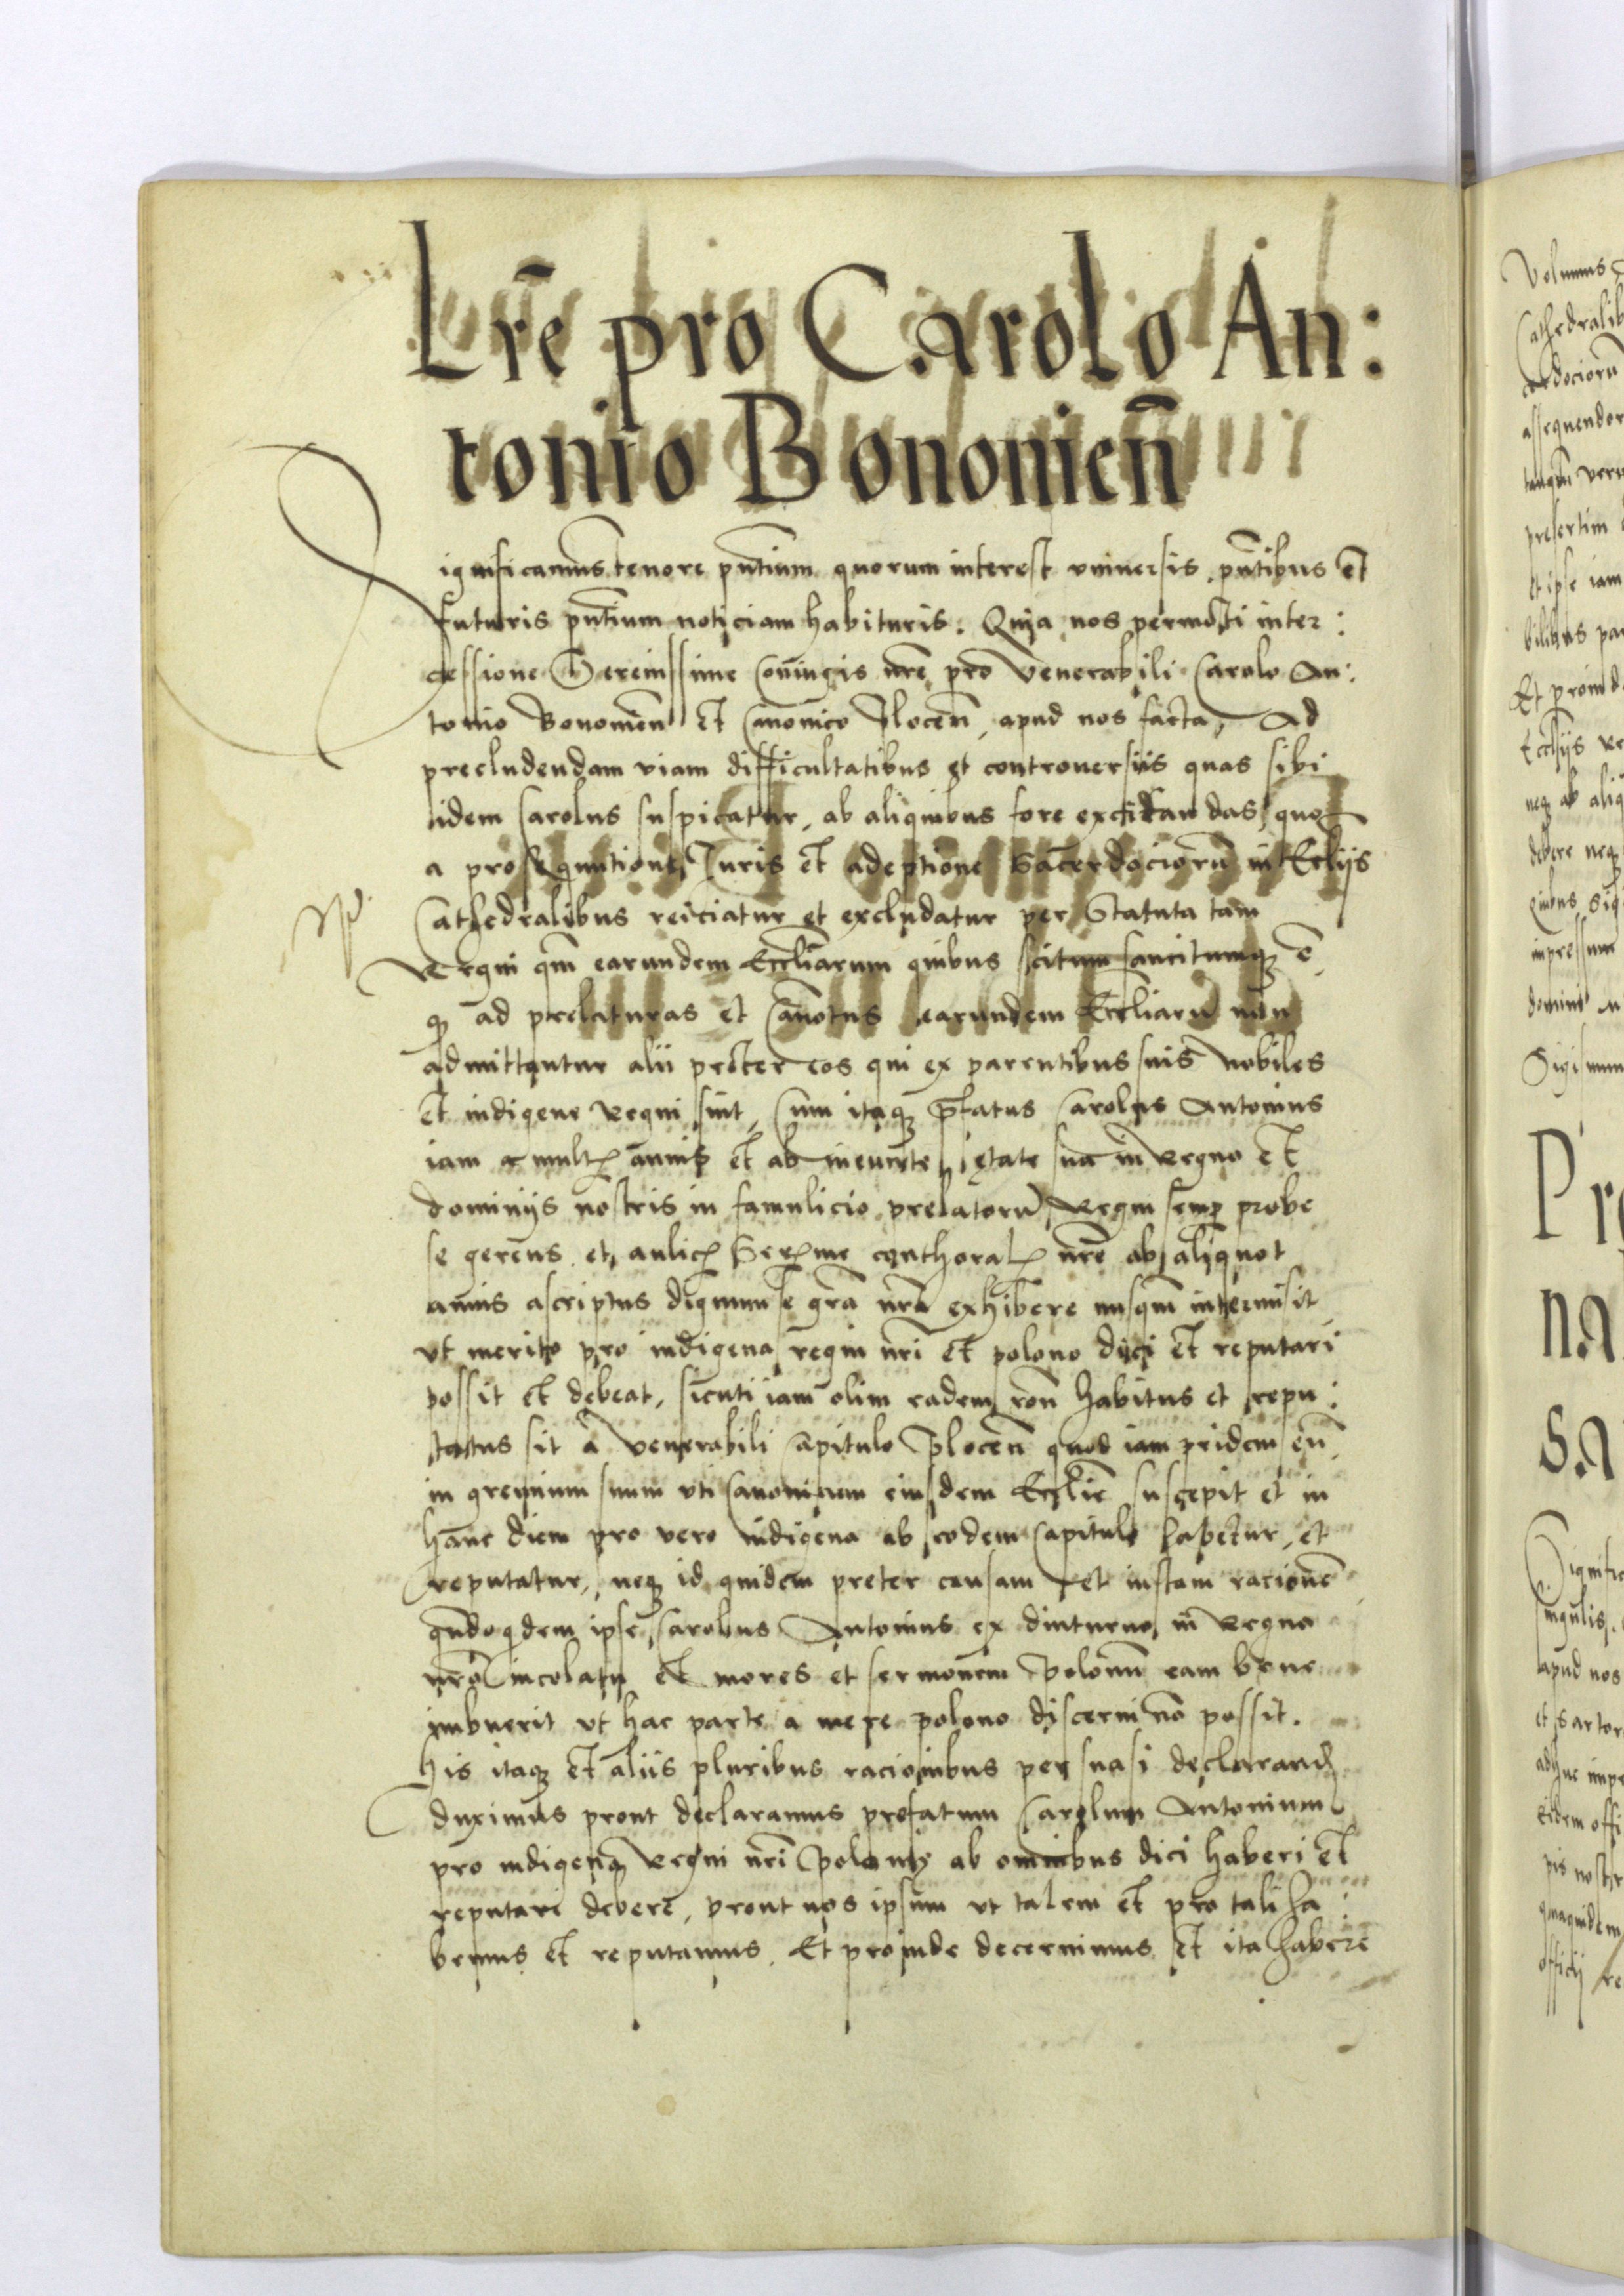 Lrē pro Carolo An:
tonio Bononien̄
Significamus tenore pn̄tium quorum interest vniuersis pn̄tibus et
futuris pn̄tium noticiam habituris. Quia nos permoti inter:
cessione Serenissime Coniugis nrē pro Venerabili Carolo An:
tonio Bononien̄ et Canonico Plocen̄, apud nos facta, Ad
precludendam viam difficultatibus et controuersiis quas sibi
idem Carolus suspicatur, ab aliquibus fore excitandas, quo
a prosequutione Iuris et adeptione Sacerdociorū in Eccliis
Cathedralibus reiciatur et excludatur per Statuta tam
Regni qm̄ earundem Eccliarum quibus scitum sancitumqȝ ē
qȝ ad prelaturas et Canotus earundem Eccliarū non
admittantur alii preter eos qui ex parentibus suis Nobiles
et indigene Regni sint, Cum itaqȝ p̄fatus Carolus Antonius
iam a mult annis et ab ineunte etate sua in Regno et
dominijs nostris in famulicio prelatorū Regni semp probe
se gerens et aulic Ser me conthoral nrē ab aliquot
annis ascriptus dignum se grā nrā exhibere nusqm̄ intermisit
vt merito pro indigena regni nrī et polono dici et reputari
possit et debeat, sicuti iam olim eadem ron̄ habitus et repu:
tatus sit a Venerabili Capitulo Plocen̄ quod iam pridem eū
in gremium suum vti Canonicum eiusdem Ecclie suscepit et in
hanc diem pro vero indigena ab eodem Capitulo habetur, et
reputatur, neqȝ id quidem preter causam et iustam racionē
qn̄doqdem ipse Carolus Antonius ex diuturno in Regno
nrō incolatu et mores et sermonem Polonū eam bene
imbuerit vt hac parte a mere polono discerni nō possit.
His itaqȝ et aliis pluribus racionibus persuasi declarand
duximus prout declaramus prefatum Carolum Antonium
pro indigena Regni nrī Poloniȩ ab omnibus dici haberi et
reputari debere, prout nos ipsum vt talem et pro tali ha:
bemus et reputamus. Et proinde decernimus et ita habere
Volumus
Cathedralib
cerdociorū
assequendor
tanqm̄ vere
presertim
et ipse iam
bilibus par
Et proind
Eccliis
neqȝ ab aliq
debere neqȝ
quibus Sig
impressum
domini
Sigismun
Pro
na
sa
Signific
singulis
apud nos
et Sartor
adque
eidem offi
pis nostr
quaquidem
officij re